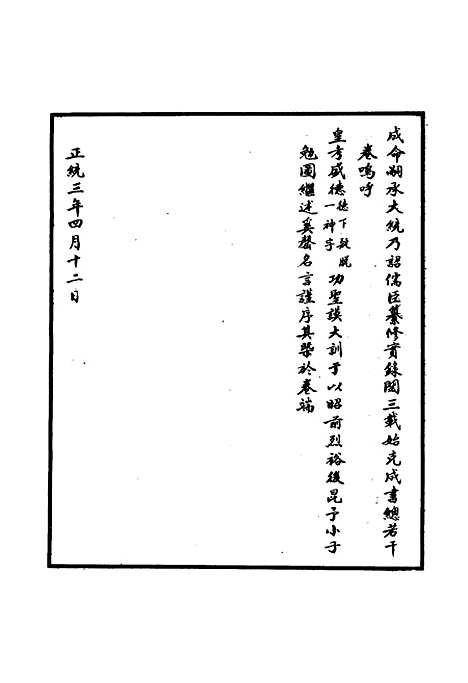 成命嗣承大統乃詔儒臣纂修實錄閱三載始克成書總若干
卷嗚呼
皇考盛德德下疑脫一神字功聖謨大訓于以昭前烈裕後昆予小子
勉圖繼述奚罄名言謹序其槩於卷端
正統三年四月十二日